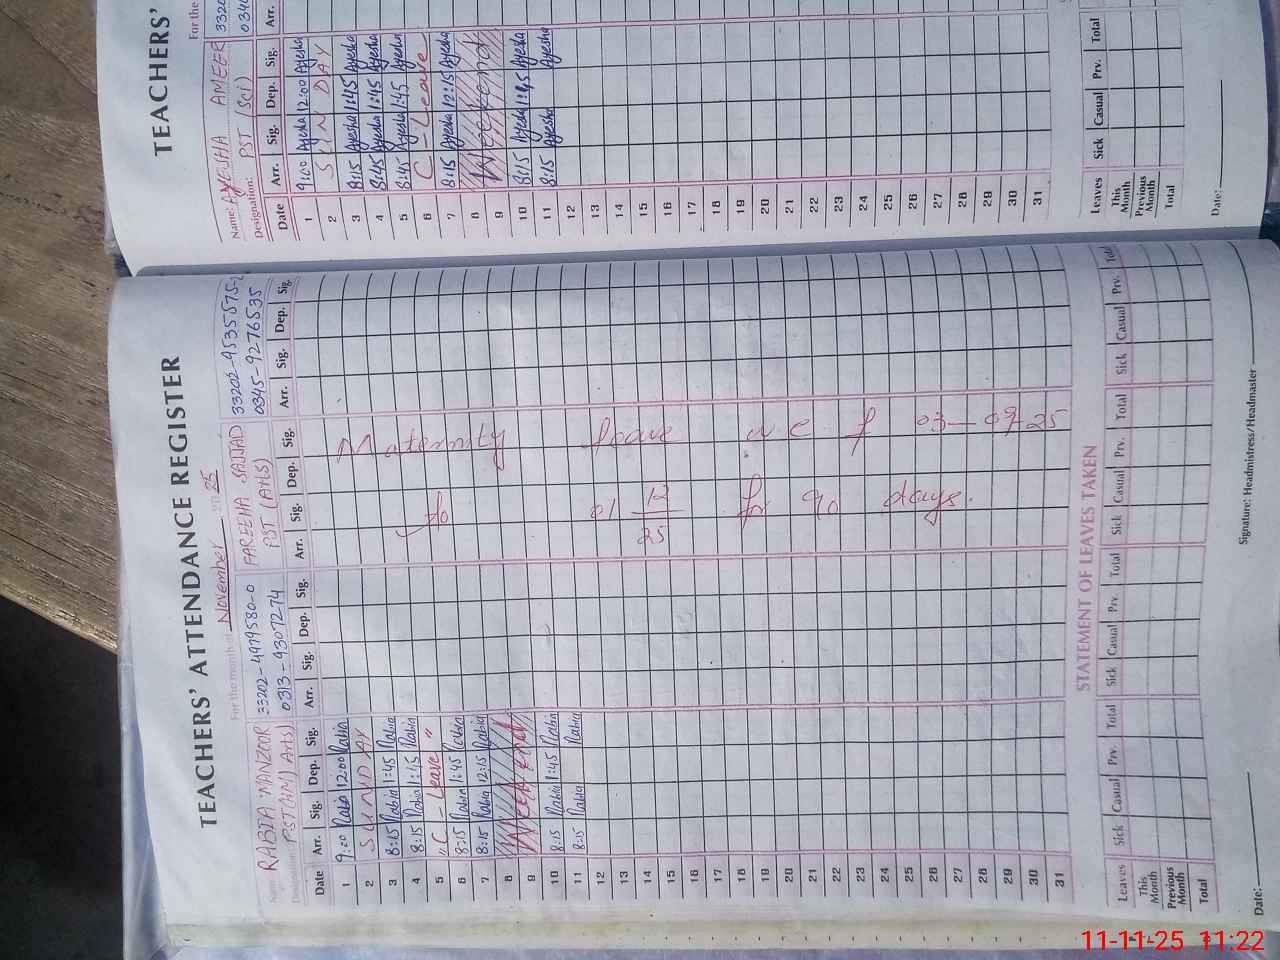 TEACHERS' ATTENDANCE REGISTER
For the month of November 2025
Name: RABIA MANZOOR 33202-4979580-0 FAREEHA SAJJAD 33202-9535875-2
PST (Arts) 0313-9307274 PST (Arts) 0345-9276535
Date Arr. Sig. Dep. Sig. Arr. Sig. Dep. Sig. Arr. Sig. Dep. Sig. Arr. Sig. Dep. Sig.
1 9:00 Rabia 12:00 Rabia
2 SUNDAY
3 8:15 Rabia 1:45 Rabia
4 8:15 Rabia 1:45 Rabia
5 "C - Leave "
6 8:15 Rabia 1:45 Rabia
7 8:15 Rabia 12:15 Rabia
8 Weekend
9
10 8:15 Rabia 1:45 Rabia
11 8:15 Rabia Rabia
12
13
14
15
16
17
18
19
20
21
22
23
24
25
26
27
28
29
30
31
Maternity leave w e f 03-09-25
to 01 12 25 for 90 days.
STATEMENT OF LEAVES TAKEN
Leaves Sick Casual Prv. Total Sick Casual Prv. Total Sick Casual Prv. Total Sick Casual Prv. Total
This Month
Previous Month
Total
Date: Signature: Headmistress/Headmaster
TEACHERS'
For the
Name: AYESHA AMEER 3320
Designation: PST (Sci) 0340
Date Arr. Sig. Dep. Sig. Arr.
1 9:00 Ayesha 12:00 Ayesha
2 SUNDAY
3 8:15 Ayesha 1:45 Ayesha
4 8:45 Ayesha 1:45 Ayesha
5 8:45 Ayesha 1:45 Ayesha
6 C - Leave
7 8:15 Ayesha 12:15 Ayesha
8 Weekend
9
10 8:15 Ayesha Ayesha
11 8:15 Ayesha Ayesha
12
13
14
15
16
17
18
19
20
21
22
23
24
25
26
27
28
29
30
31
Leaves Sick Casual Prv. Total
This Month
Previous Month
Total
Date:
11-11-25 11:22